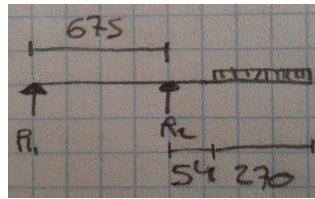 675
R₁
R₂
54 270